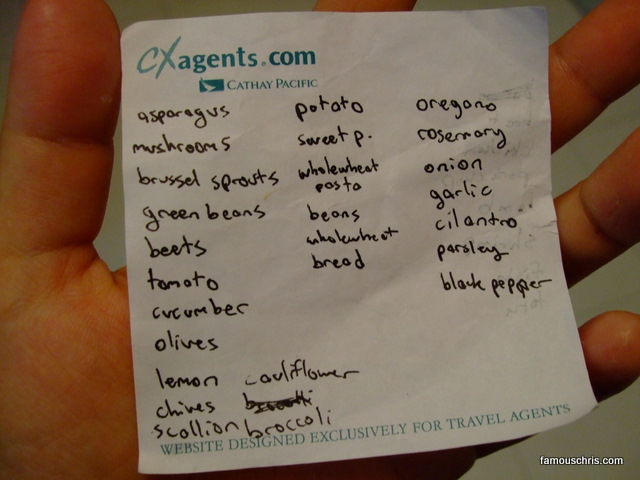 CXagents.com
CATHAY PACIFIC
asparagus
mushrooms
brussel sprouts
green beans
beets
tomato
cucumber
olives
lemon
chives
scallion
cauliflower
broccoli
potato
sweet p.
wholewheat
pasta
beans
wholewheat
bread
oregano
rosemary
onion
garlic
cilantro
parsley
black pepper
WEBSITE DESIGNED EXCLUSIVELY FOR TRAVEL AGENTS
famouschris.com